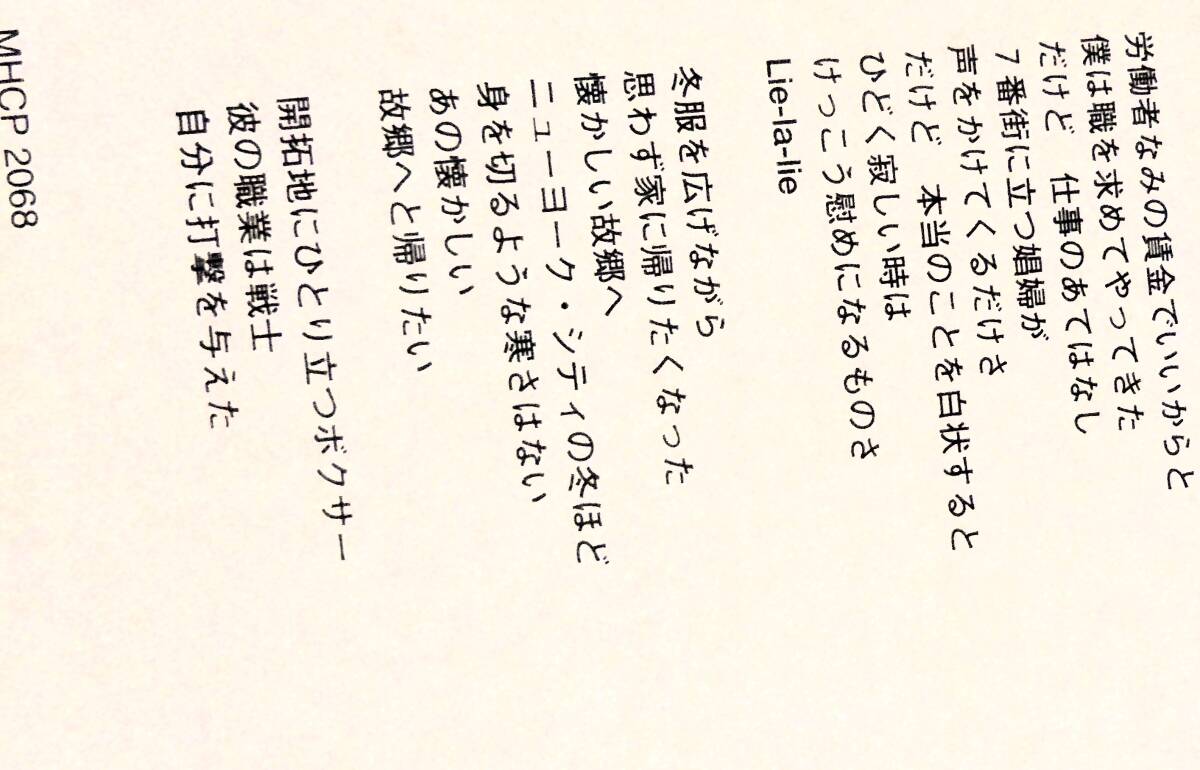 労働者なみの賃金でいいからと
僕は職を求めてやってきた
だけど 仕事のあてはなし
7番街に立つ娼婦が
声をかけてくるだけさ
だけど 本当のことを白状すると
ひどく寂しい時は
けっこう慰めになるものさ
Lie-la-lie
冬服を広げながら
思わず家に帰りたくなった
懐かしい故郷へ
ニューヨーク・シティの冬ほど
身を切るような寒さはない
あの懐かしい
故郷へと帰りたい
開拓地にひとり立つボクサー
彼の職業は戦士
自分に打撃を与えた
MHCP 2068